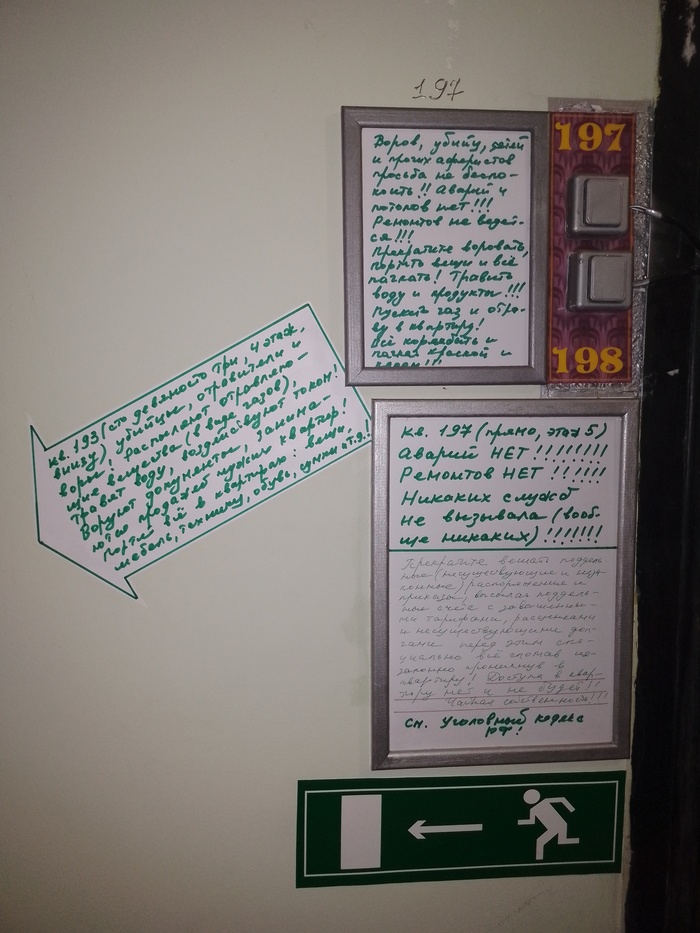 197
Воров, убийц, детей
и прочих аферистов
просьба не беспо-
коить!! Аварий и
потопов нет!!!
Ремонтов не ведёт-
ся!!!
Прекратите воровать,
портить вещи и всё
пачкать! Травить
воду и продукты!!!
Пускать газ и отра-
ву в квартиру!
Всё
пачкая краской и
клеем!!!
197
198
кв. 193 (сто девяносто три, 4 этаж,
внизу) убийцы, отравители и
воры, распыляют отравляю-
щие вещества (в виде газов),
травят воду, воздействуют током!
Воруют документы, занима-
ются продажей чужих квартир!
Портят всё в квартирах: вещи,
мебель, технику, обувь, сумки и т.д.!
кв. 197 (прямо, этаж 5)
Аварий НЕТ!!!!!!!!
Ремонтов НЕТ!!!!!!
Никаких служб
не вызывала (вооб-
ще никаких)!!!!!!!
Прекратите вешать поддель-
ные (несуществующие и неза-
конные) распоряжения и
приказы, высылая поддель-
ные счета с завышенны-
ми тарифами, расценками
и несуществующими дол-
гами перед этим спе-
циально всё сломав не-
законно проникнув в
квартиру! Доступа в квар-
тиру нет и не будет!!
Частная собственность!!!
см. Уголовный кодекс
РФ!